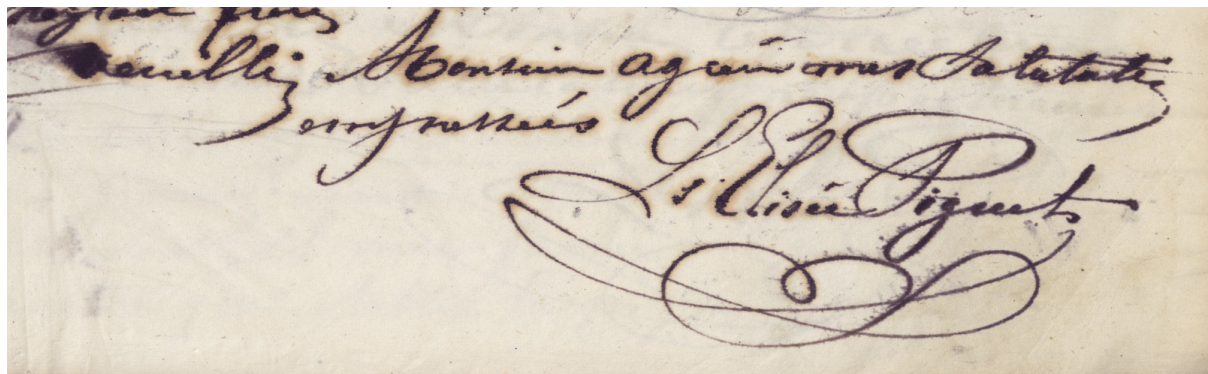 Veuillez Monsieur agréer mes Salutati
empressées
Ls Elisée Piguet